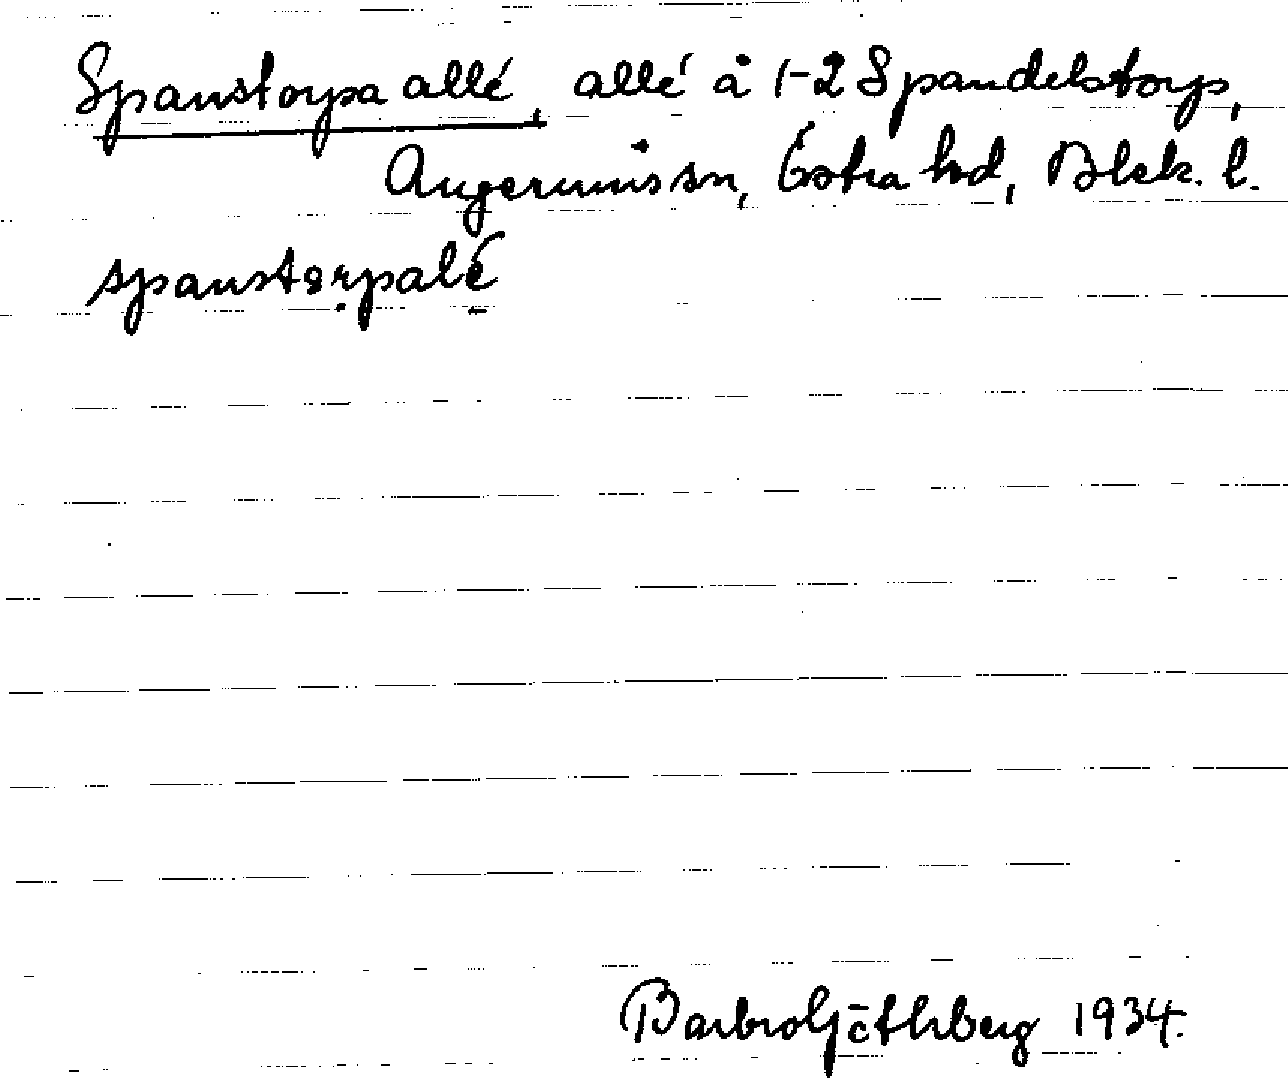 Spanstorpa allé, allé å 1-2 Spandelstorp,
Augerums sn, Östra hd, Blek. l.
spanstorpalé
Barbro Göthberg 1934.